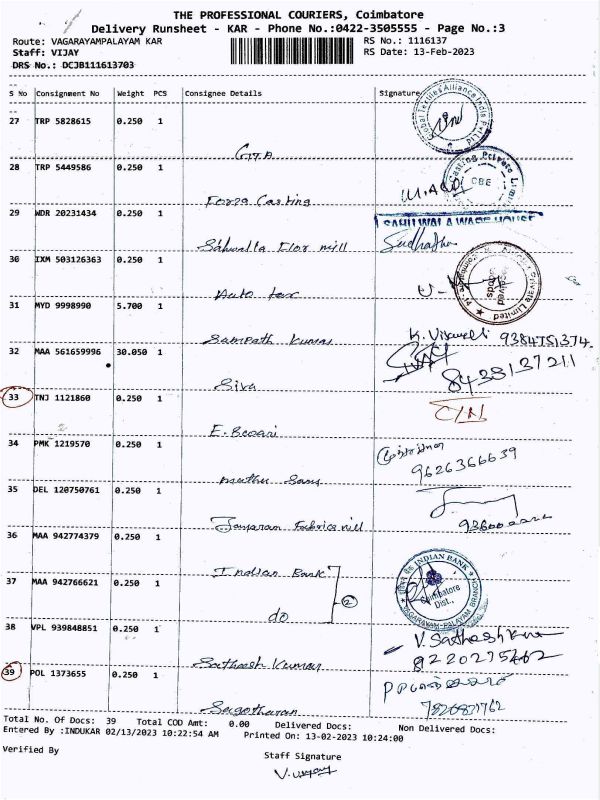 THE PROFESSIONAL COURIERS, Coimbatore
Delivery Runsheet - KAR - Phone No.:0422-3505555 - Page No.:3
Route: VAGARAYAMPALAYAM KAR RS No.: 1116137
Staff: VIJAY RS Date: 13-Feb-2023
DRS No.: DCJB111613703
S No Consignment No Weight PCS Consignee Details Signature
27 TRP 5828615 0.250 1
GTA
28 TRP 5449586 0.250 1
Forza Casting
29 WDR 20231434 0.250 1 SAHUWALA WARE HOUSE
Sudhatha
30 IXM 503126363 0.250 1
Auto tex
31 MYD 9998990 5.700 1
Sampath Kumar
K. 9384751374
32 MAA 561659996 30.050 1
Siva
8438137211
33 TNJ 1121860 0.250 1
E.
34 PMK 1219570 0.250 1
muthu
9626366639
35 DEL 120750761 0.250 1
Fabrics mill
36 MAA 942774379 0.250 1
Indian Bank
INDIAN BANK
Coimbatore
Dist.,
37 MAA 942766621 0.250 1
do
2
38 VPL 939848851 0.250 1
Satheesh Kumar
V. Satheesh Kumar
9220275462
39 POL 1373655 0.250 1
Total No. Of Docs: 39 Total COD Amt: 0.00 Delivered Docs: Non Delivered Docs:
Entered By :INDUKAR 02/13/2023 10:22:54 AM Printed On: 13-02-2023 10:24:00
Verified By
Staff Signature
V. Vijay